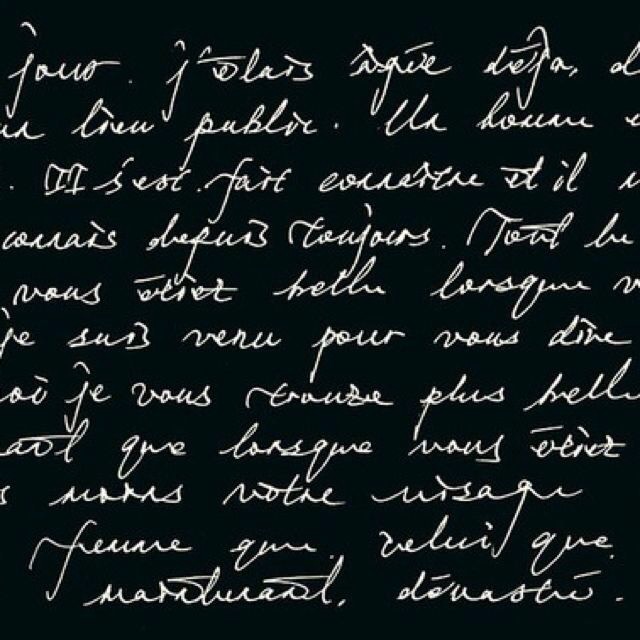 jour. j'étais âgée déjà, d
un lieu public. Un homme
. Il s'est fait connaître et il
connais depuis toujours. Tout le
vous étiez belle lorsque v
je suis venu pour vous dire
oi je vous trouve plus belle
ant que lorsque vous étiez
s moins votre visage
femme que celui que
maintenant, dévasté.